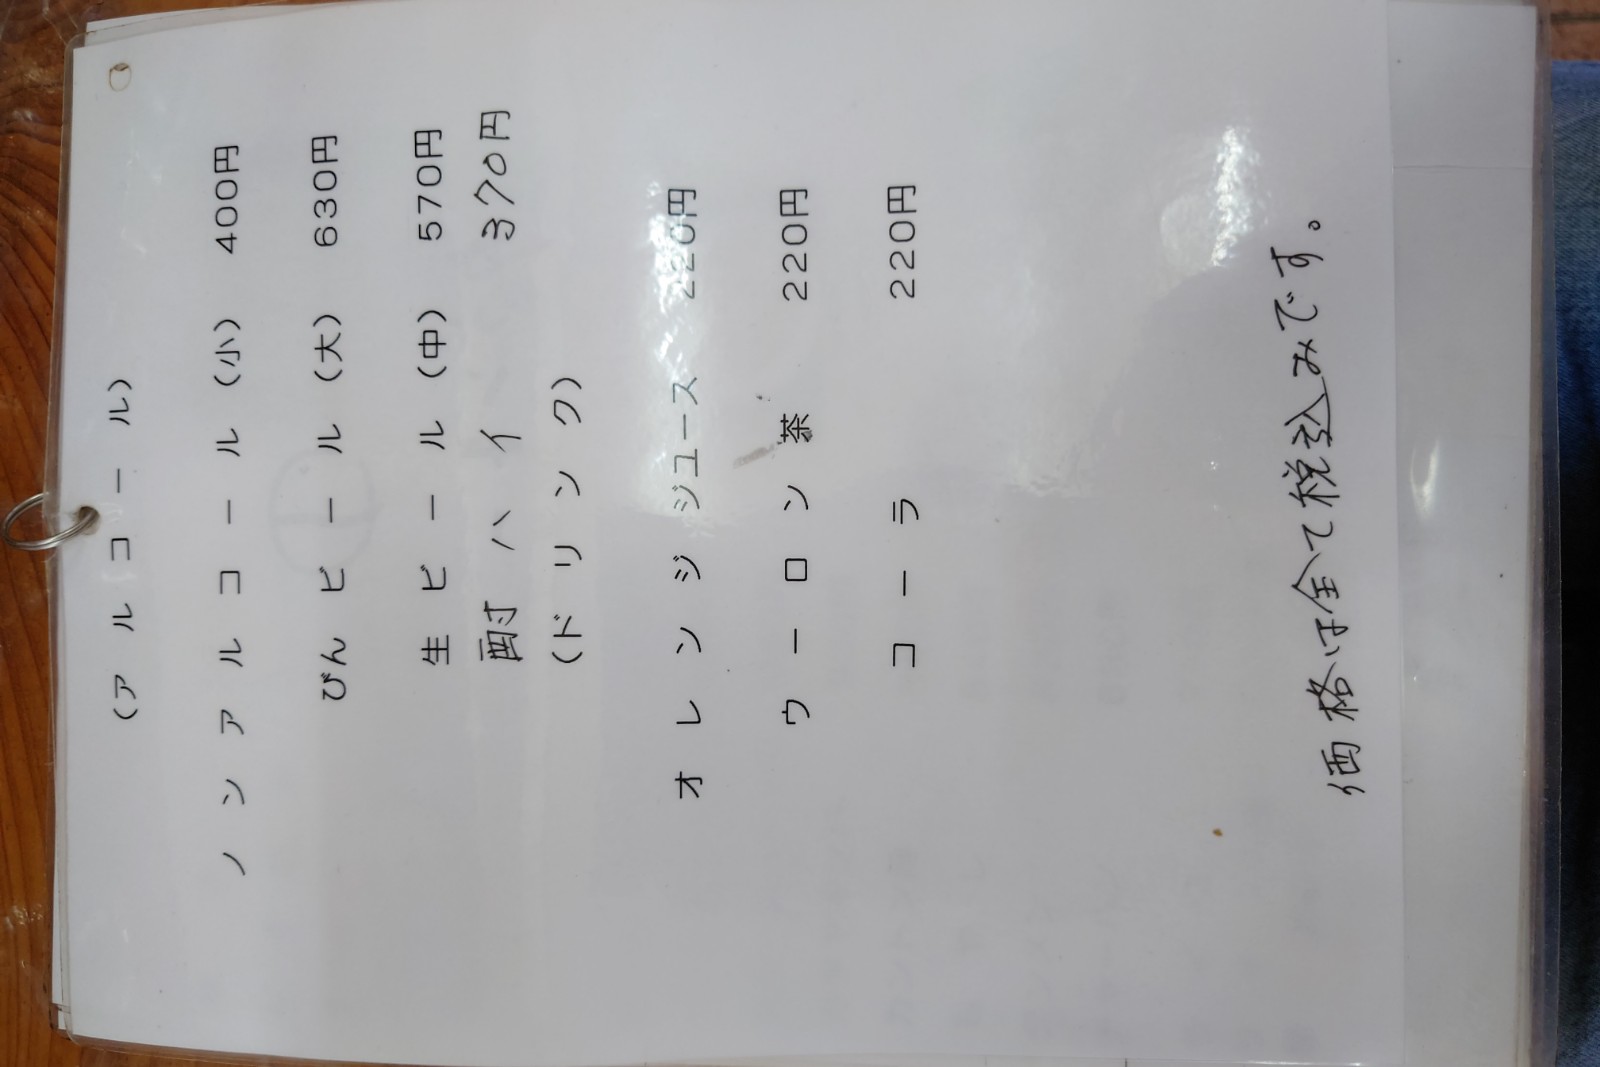 （アルコール）
ノンアルコール（小） 400円
びんビール（大） 630円
生ビール（中） 570円
酎ハイ 370円
（ドリンク）
オレンジジュース 220円
ウーロン茶 220円
コーラ 220円
価格は全て税込みです。